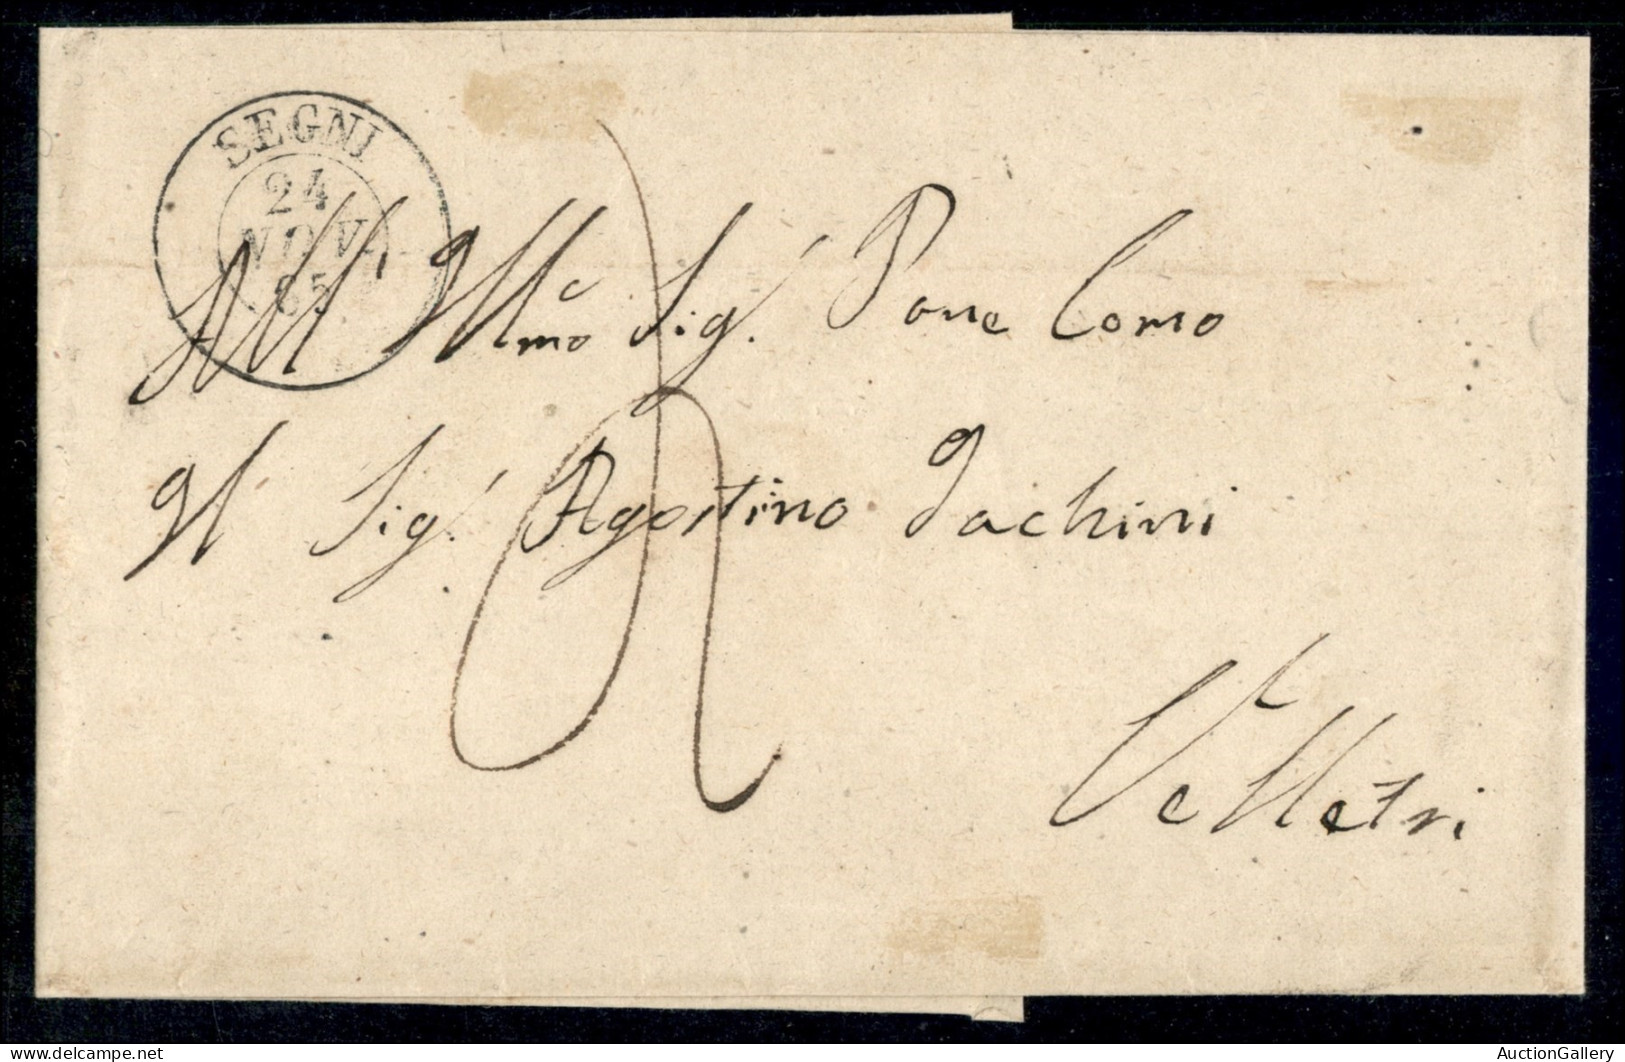 SEGNI
24
NOV.
65
All' Illmo Sig.' Pane Comо
Il Sig.' Agostino Jachini
Velletri
delcampe.net
AuctionGallery